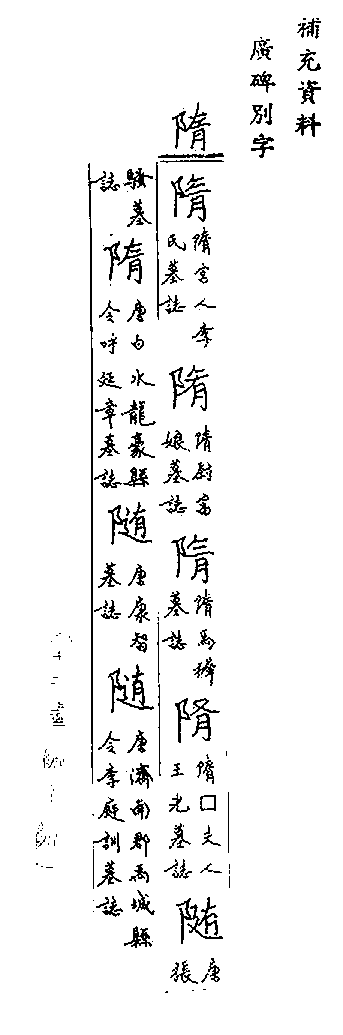 補充資料
廣碑別字
隋
隋 隋宮人李氏墓誌 隋 隋尉富娘墓誌 隋 隋馬穉墓誌 隋 隋□夫人王光墓誌 随 唐張
騷墓誌 隋 唐白水龍豪縣令呼延章墓誌 随 唐康智墓誌 随 唐濟南郡禹城縣令李庭訓墓誌